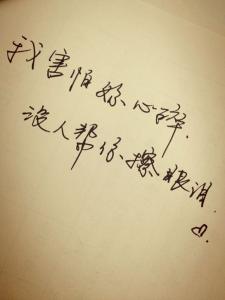 我害怕你心碎.
没人帮你擦眼泪.